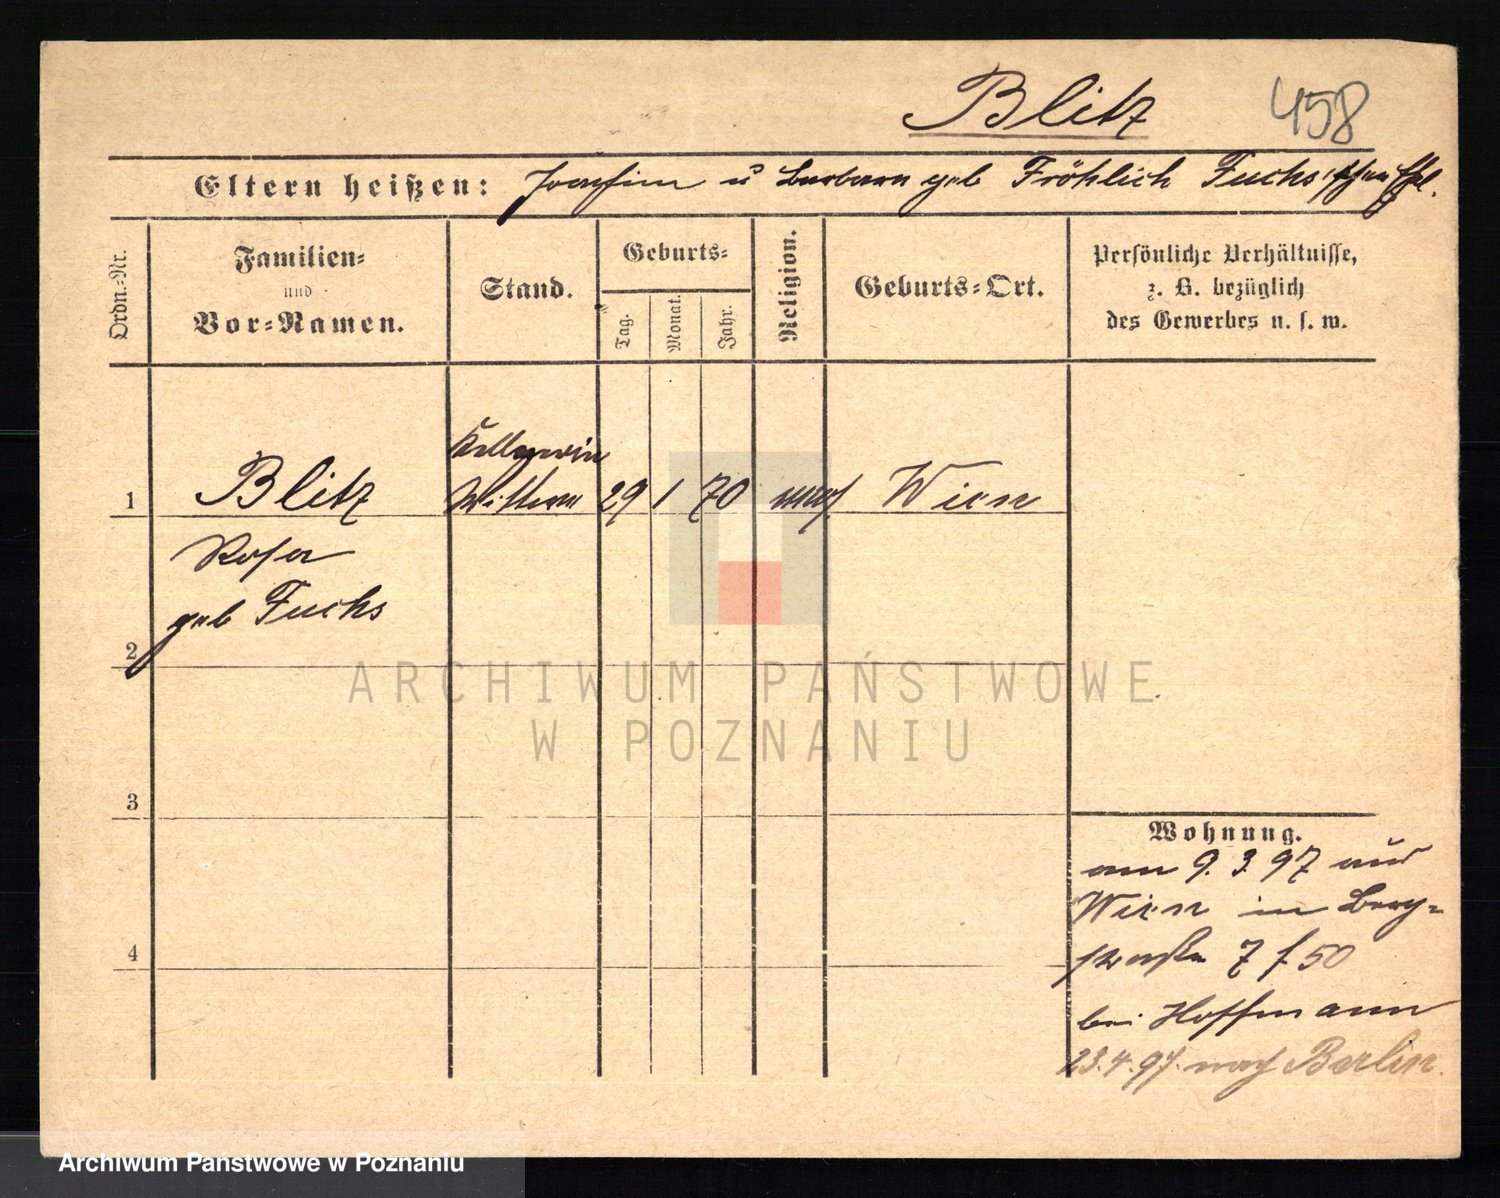 Blitz 458
Eltern heißen: Joachim u Barbara geb Fröhlich Fuchs'schen Ehel.
Ordn.-Nr.
Familien-
und
Vor-Namen.
Stand.
Geburts-
Tag.
Monat.
Jahr.
Religion.
Geburts-Ort.
Persönliche Verhältnisse,
z. B. bezüglich
des Gewerbes u. s. w.
Kellnerin
1 Blitz Wittwe 29 1 70 mos. Wien
Rosa
geb Fuchs
2
3
4
Wohnung.
am 9. 3. 97 aus
Wien in Berg-
straße 7 f 50
bei Hoffmann
23.4.97. nach Berlin.
ARCHIWUM PAŃSTWOWE
W POZNANIU
Archiwum Państwowe w Poznaniu